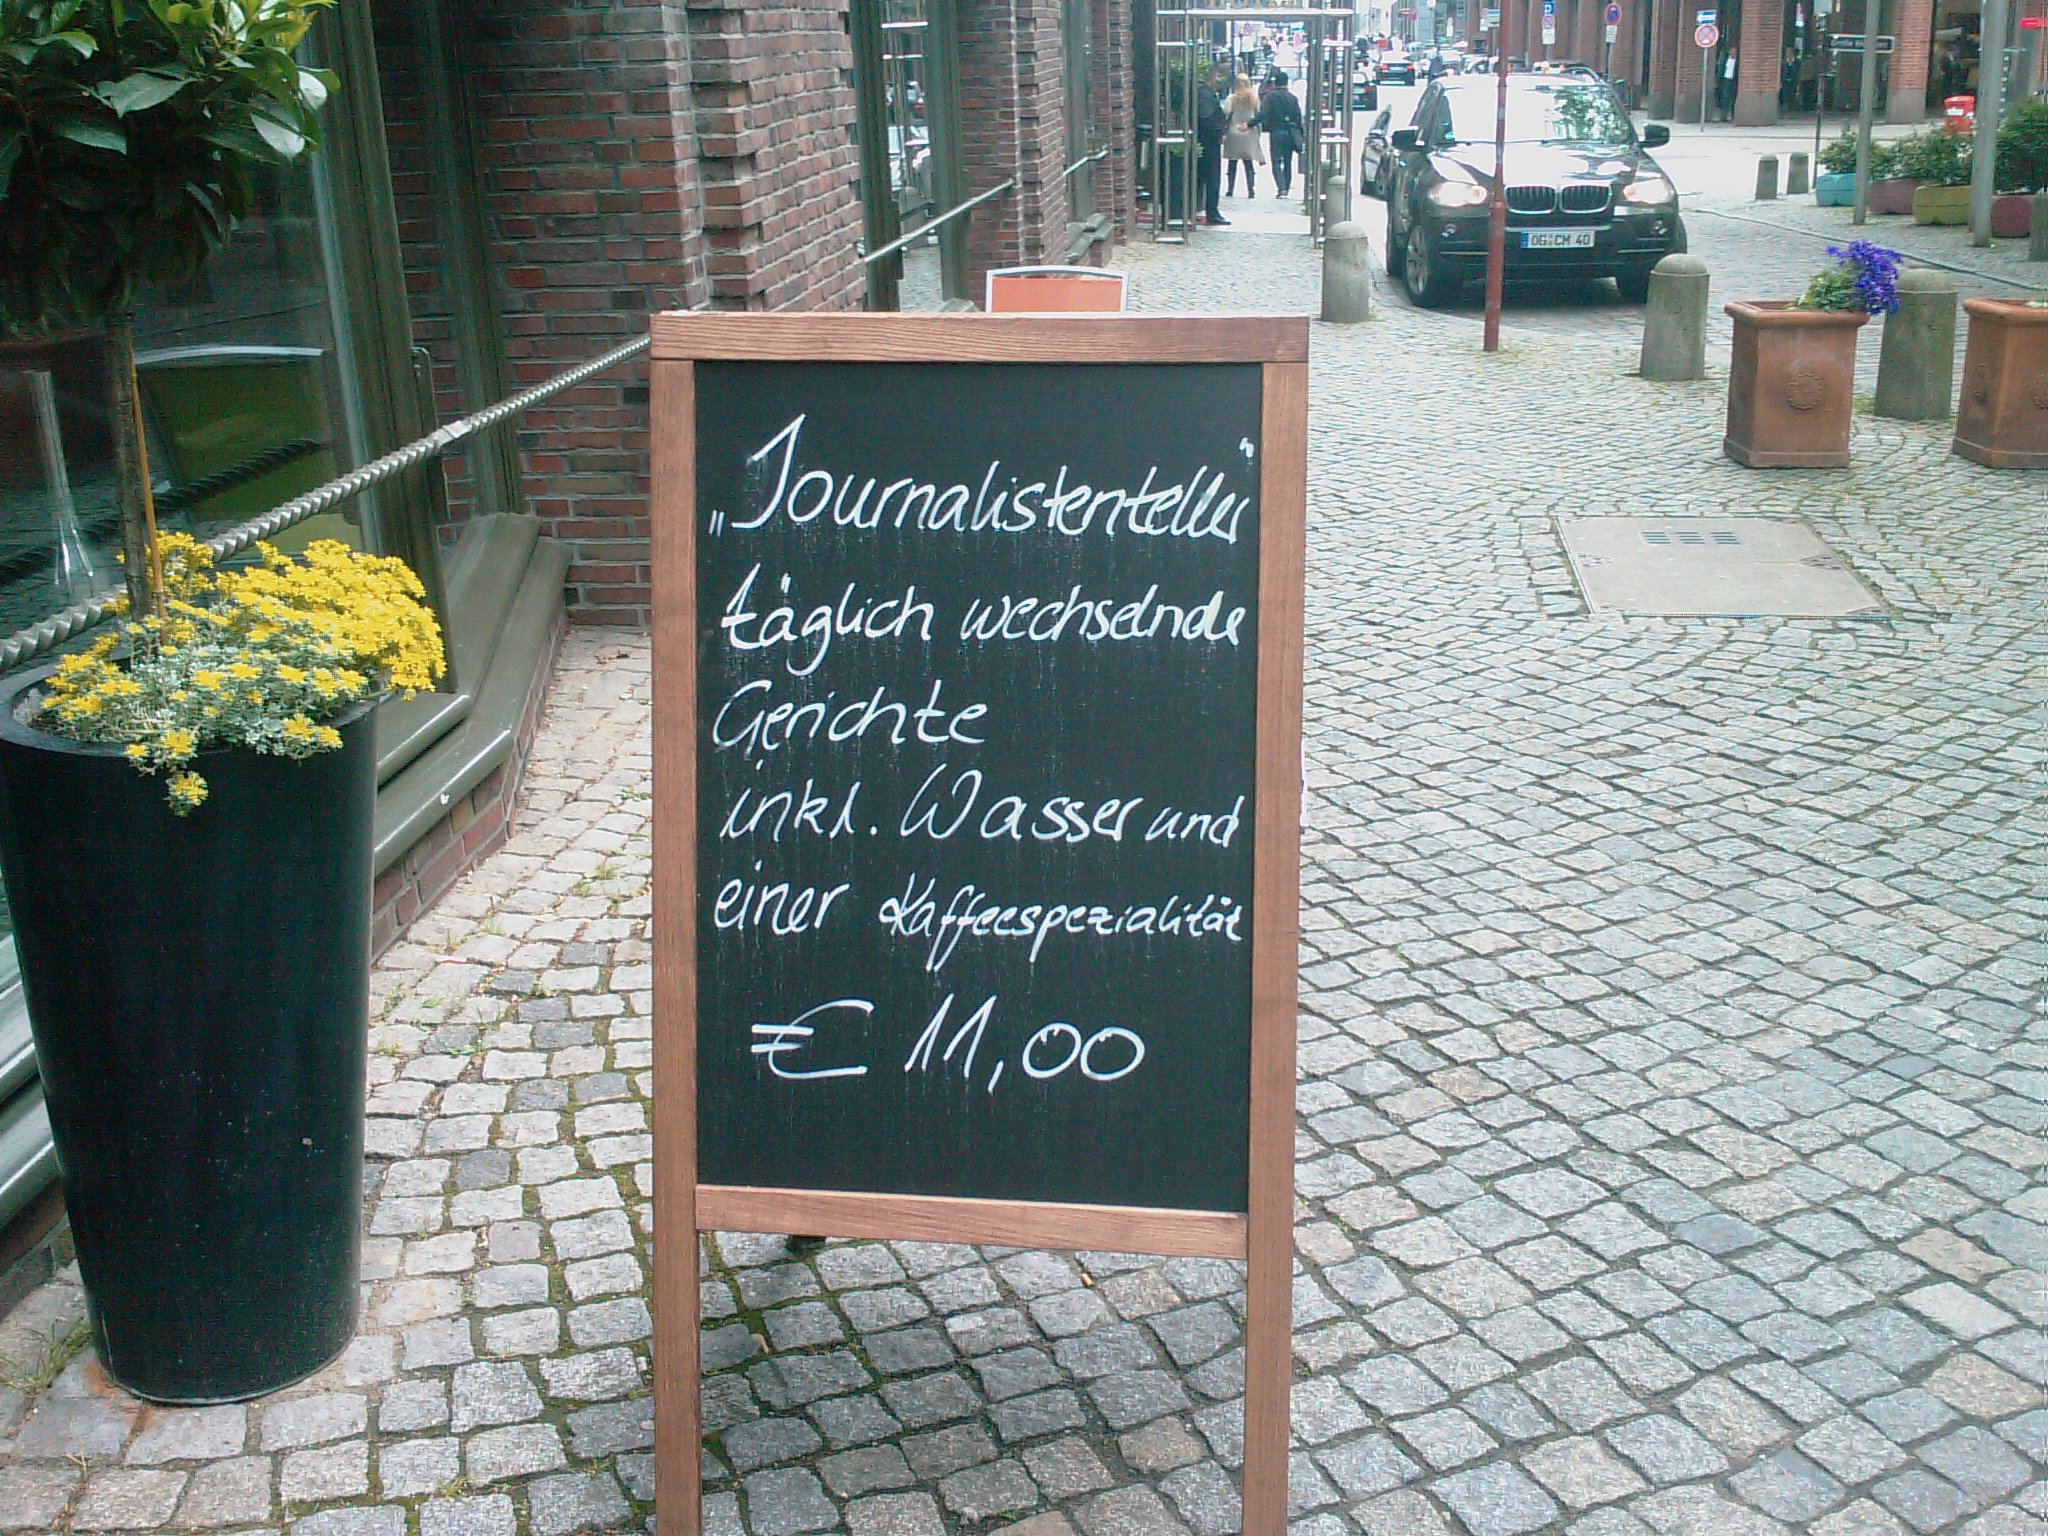 „Journalistenteller“
täglich wechselnde
Gerichte
inkl. Wasser und
einer Kaffeespezialität
€ 11,00
OG CM 40